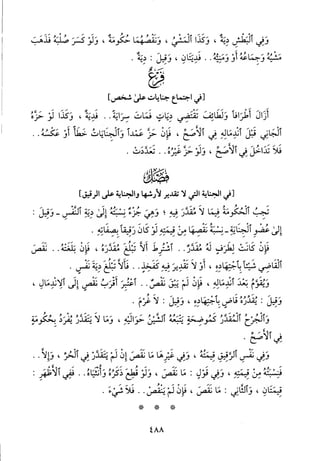 وَفِي ٱلْبَطْشِ دِيَةٌ ، وَكَذَا ٱلْمَشْيُ ، وَنَقْصُهُمَا حُكُومَةٌ ، وَلَوْ كَسَرَ صُلْبَهُ فَذَهَبَ
مَشْيُهُ وَجِمَاعُهُ أَوْ وَمَنِيُّهُ .. فَدِيَتَانِ ، وَقِيلَ : دِيَةٌ .
فَرْعٌ
[في اجتماع جنايات على شخص]
أَزَالَ أَطْرَافاً وَلَطَائِفَ تَقْتَضِي دِيَاتٍ فَمَاتَ سِرَايَةً .. فَدِيَةٌ ، وَكَذَا لَوْ حَزَّهُ
ٱلْجَانِي قَبْلَ ٱنْدِمَالِهِ فِي ٱلأَصَحِّ ، فَإِنْ حَزَّ عَمْداً وَٱلْجِنَايَاتُ خَطَأٌ أَوْ عَكْسُهُ ..
فَلاَ تَدَاخُلَ فِي ٱلأَصَحِّ ، وَلَوْ حَزَّ غَيْرُهُ .. تَعَدَّدَتْ .
فَصْلٌ
[في الجناية التي لا تقدير لأرشها والجناية على الرقيق]
تَجِبُ ٱلْحُكُومَةُ فِيمَا لاَ مُقَدَّرَ فِيهِ ؛ وَهِيَ جُزْءٌ نِسْبَتُهُ إِلَىٰ دِيَةِ ٱلنَّفْسِ - وَقِيلَ :
إِلَىٰ عُضْوِ ٱلْجِنَايَةِ - نِسْبَةُ نَقْصِهَا مِنْ قِيمَتِهِ لَوْ كَانَ رَقِيقاً بِصِفَاتِهِ .
فَإِنْ كَانَتْ لِطَرَفٍ لَهُ مُقَدَّرٌ .. ٱشْتُرِطَ أَلاَّ تَبْلُغَ مُقَدَّرَهُ ، فَإِنْ بَلَغَتْهُ .. نَقَصَ
ٱلْقَاضِي شَيْئاً بِٱجْتِهَادِهِ ، أَوْ لاَ تَقْدِيرَ فِيهِ كَفَخِذٍ .. فَأَلاَّ تَبْلُغَ دِيَةَ نَفْسٍ .
وَيُقَوَّمُ بَعْدَ ٱنْدِمَالِهِ ، فَإِنْ لَمْ يَبْقَ نَقْصٌ .. ٱعْتُبِرَ أَقْرَبُ نَقْصٍ إِلَى ٱلاِنْدِمَالِ ،
وَقِيلَ : يُقَدِّرُهُ قَاضٍ بِٱجْتِهَادِهِ ، وَقِيلَ : لاَ غُرْمَ .
وَٱلْجُرْحُ ٱلْمُقَدَّرُ كَمُوضِحَةٍ يَتْبَعُهُ ٱلشَّيْنُ حَوَالَيْهِ ، وَمَا لاَ يَتَقَدَّرُ يُفْرَدُ بِحُكُومَةٍ
فِي ٱلأَصَحِّ .
وَفِي نَفْسِ ٱلرَّقِيقِ قِيمَتُهُ ، وَفِي غَيْرِهَا مَا نَقَصَ إِنْ لَمْ يَتَقَدَّرْ فِي ٱلْحُرِّ ، وَإِلاَّ ..
فَنِسْبَتُهُ مِنْ قِيمَتِهِ ، وَفِي قَوْلٍ : مَا نَقَصَ ، وَلَوْ قُطِعَ ذَكَرُهُ وَأُنْثَيَاهُ .. فَفِي ٱلأَظْهَرِ :
قِيمَتَانِ ، وَٱلثَّانِي : مَا نَقَصَ ، فَإِنْ لَمْ يَنْقُصْ .. فَلاَ شَيْءَ .
* * *
٤٨٨